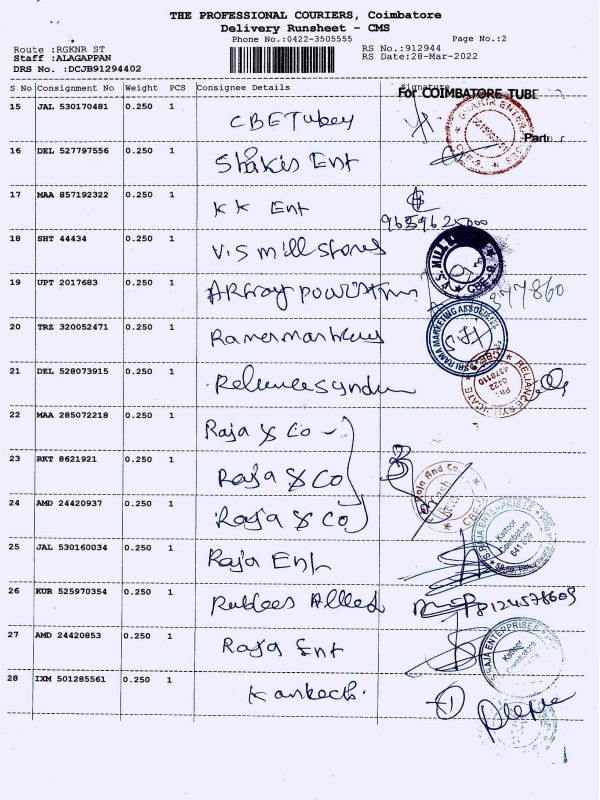 THE PROFESSIONAL COURIERS, Coimbatore
Delivery Runsheet - CMS
Phone No.:0422-3505555 Page No.:2
Route :RGKNR ST RS No.:912944
Staff :ALAGAPPAN RS Date:28-Mar-2022
DRS No. :DCJB91294402
S No Consignment No Weight PCS Consignee Details Signature
For COIMBATORE TUBE
15 JAL 530170481 0.250 1 CBE Tubey
Partn r
16 DEL 527797556 0.250 1 Shakis Ent
17 MAA 857192322 0.250 1 K K Ent
18 SHT 44434 0.250 1 V.S mill stores
19 UPT 2017683 0.250 1
20 TRZ 320052471 0.250 1
SRI RAMA MARKETING ASSOCIATES
21 DEL 528073915 0.250 1
RELIANCE SYNDICATE
Ph: 0422 4378110
22 MAA 285072218 0.250 1 Raja & Co
23 RKT 8621921 0.250 1 Raja & Co
Raja And Co
24 AMD 24420937 0.250 1 Raja & Co
RAJA ENTERPRISES
Kattoor
Coimbatore
641 009
25 JAL 530160034 0.250 1 Raja Ent
26 KUR 525970354 0.250 1 Allied
27 AMD 24420853 0.250 1 Raja Ent
RAJA ENTERPRISES
Kattoor
Coimbatore
28 IXM 501285561 0.250 1